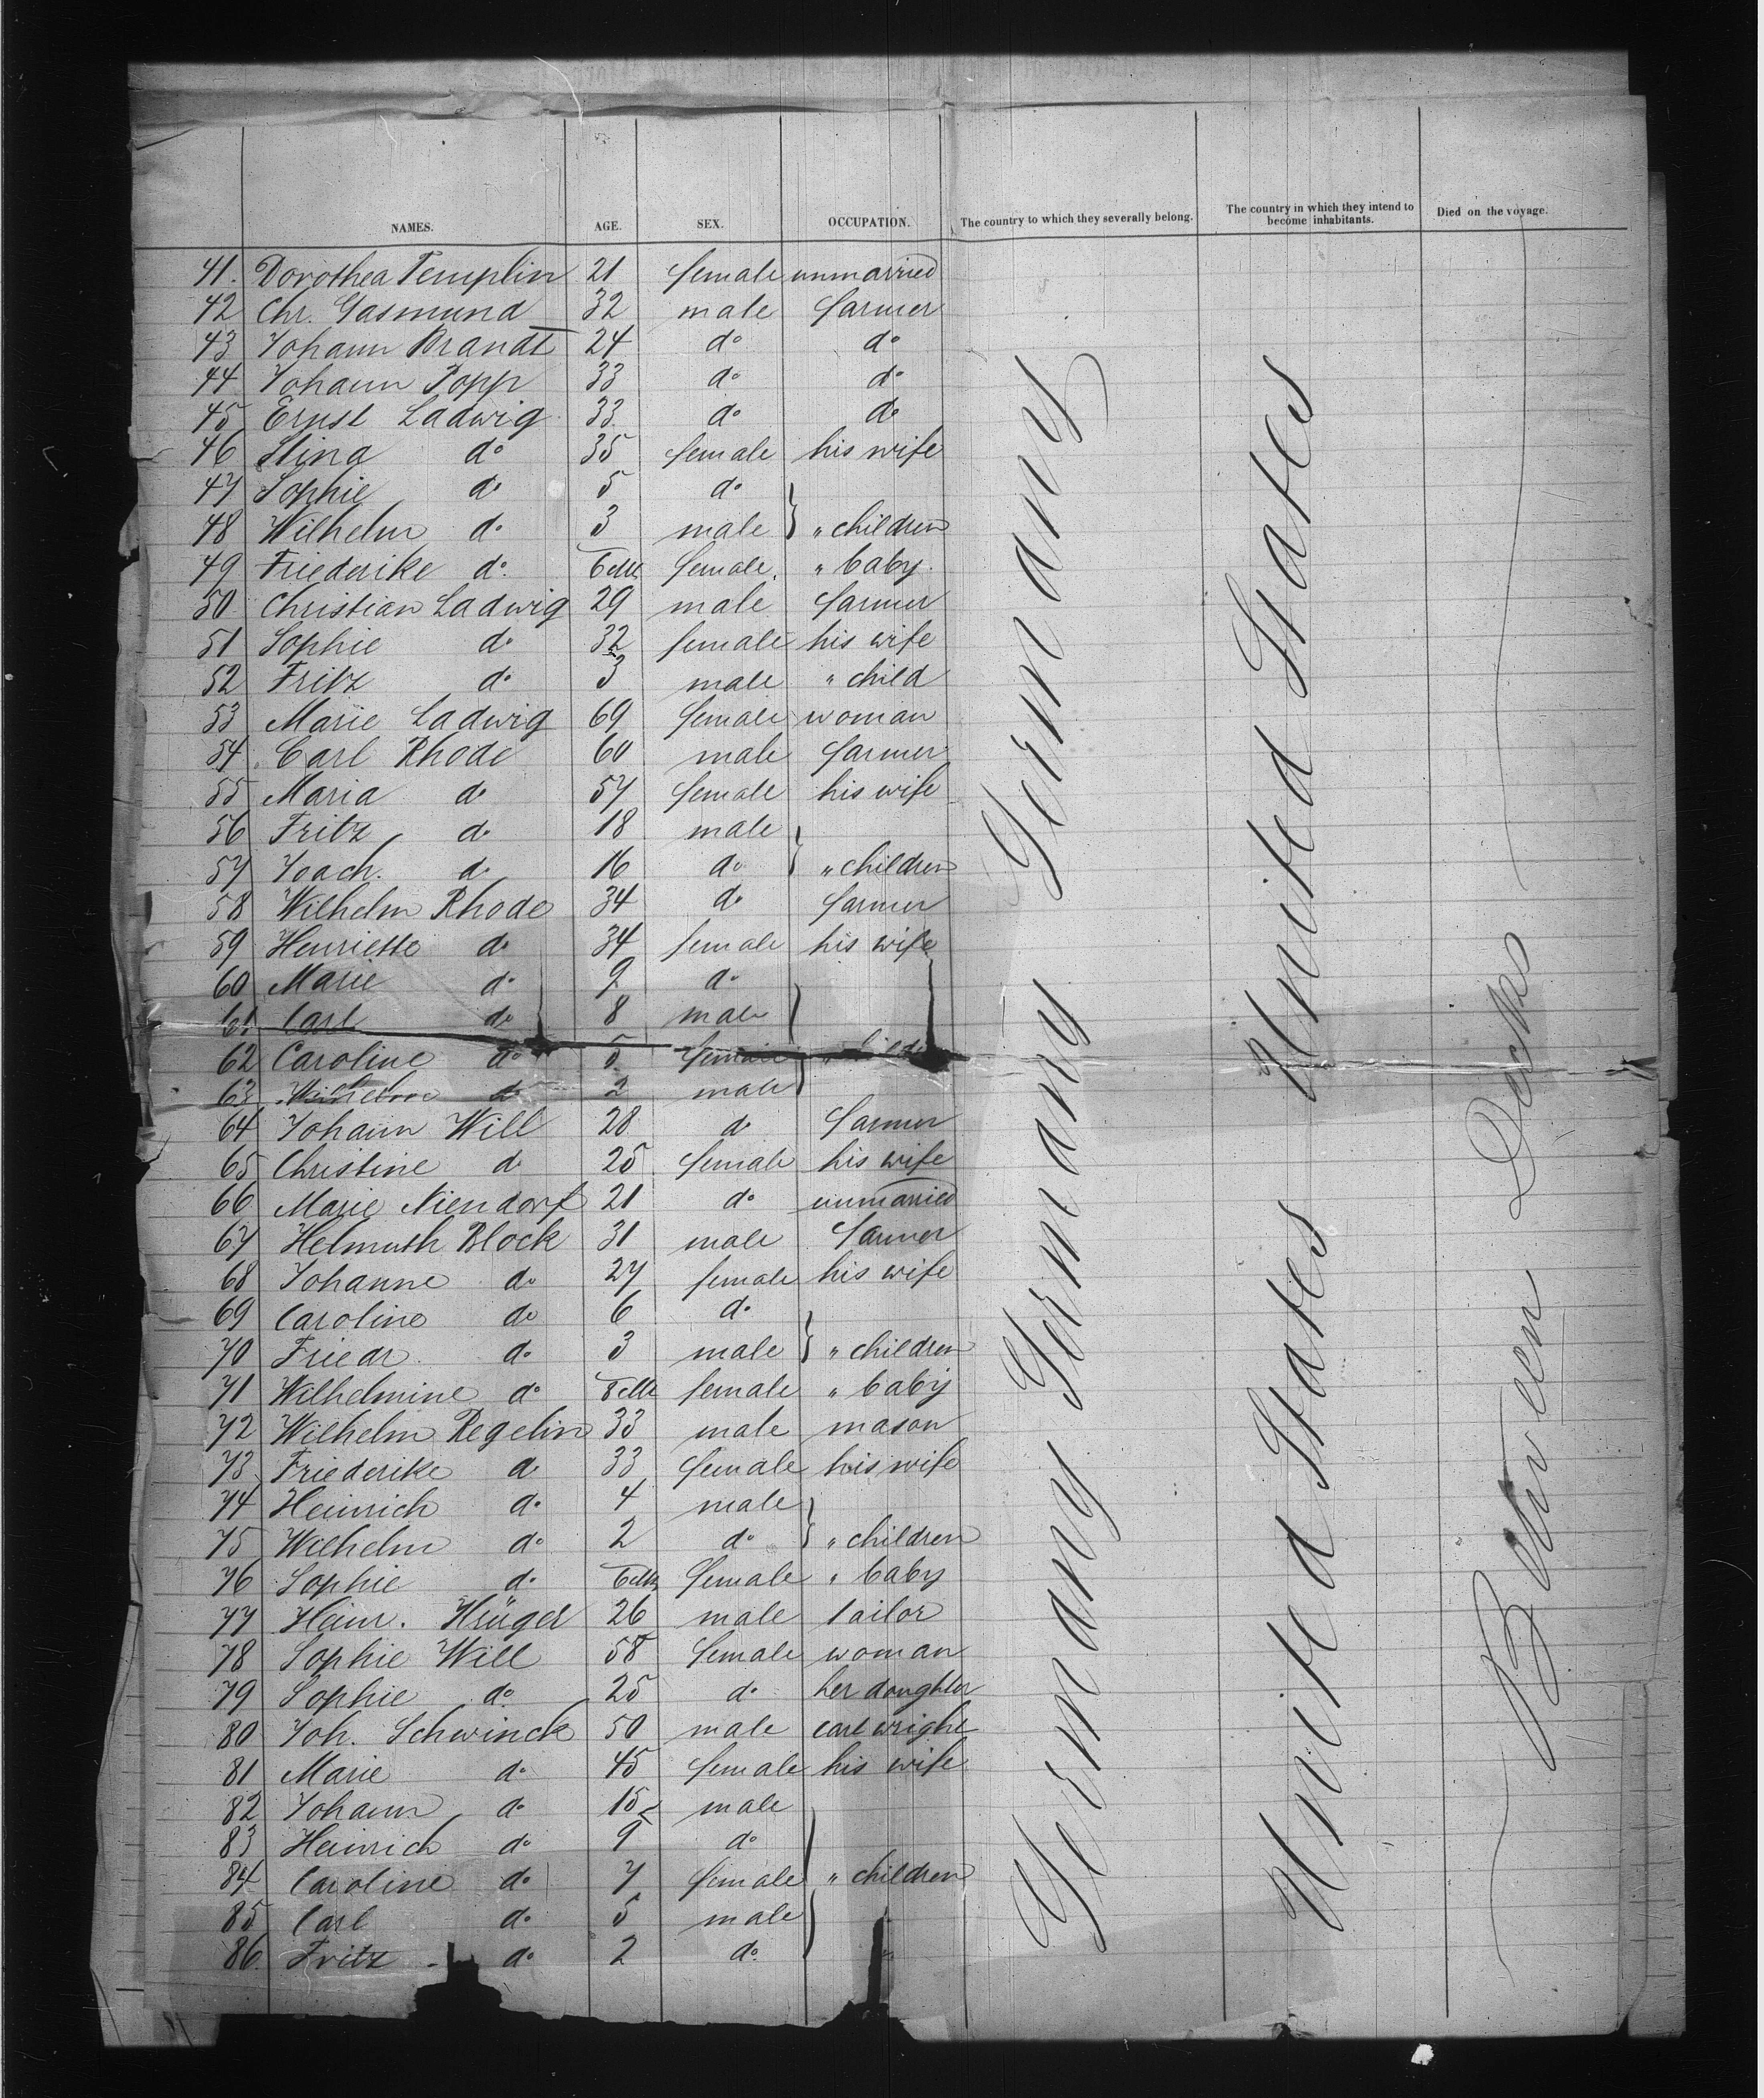 NAMES. AGE. SEX. OCCUPATION. The country to which they severally belong. The country in which they intend to become inhabitants. Died on the voyage.
41. Dorothea Templin 21 female unmarried
42 Chr. Gasmund 32 male farmer
43 Johann Brandt 24 do do
44 Johann Popp 33 do do
45 Ernst Ladwig 33 do do
46 Stina do 35 female his wife
47 Sophie do 5 do
48 Wilhelm do 3 male " children
49 Friederike do female " baby
50 Christian Ladwig 29 male farmer
51 Sophie do 32 female his wife
52 Fritz do 3 male " child
53 Marie Ladwig 69 female woman
54 Carl Rhode 60 male farmer
55 Maria do 57 female his wife
56 Fritz do 18 male
57 Joach. do 16 do " children
58 Wilhelm Rhode 34 do farmer
59 Henriette do 34 female his wife
60 Marie do 9 do
61 Carl do 8 male
62 Caroline do 5 female
63 Wilhelm do 2 male
64 Johann Will 28 do farmer
65 Christine do 25 female his wife
66 Marie Niendorf 21 do unmarried
67 Helmuth Block 31 male farmer
68 Johanne do 27 female his wife
69 Caroline do 6 do
70 Friedr. do 3 male " children
71 Wilhelmine do female " baby
72 Wilhelm Regelin 33 male mason
73 Friederike do 33 female his wife
74 Heinrich do 4 male
75 Wilhelm do 2 do " children
76 Sophie do female " baby
77 Heinr. Krüger 26 male tailor
78 Sophie Will 58 female woman
79 Sophie do 25 do her doughter
80 Joh. Schwinck 50 male cartwright
81 Marie do 45 female his wife
82 Johann do 15 male
83 Heinrich do 9 do
84 Caroline do 7 female " children
85 Carl do 5 male
86. Fritz do 2 do
Germany Germany Germany
United States United States
Between Decks